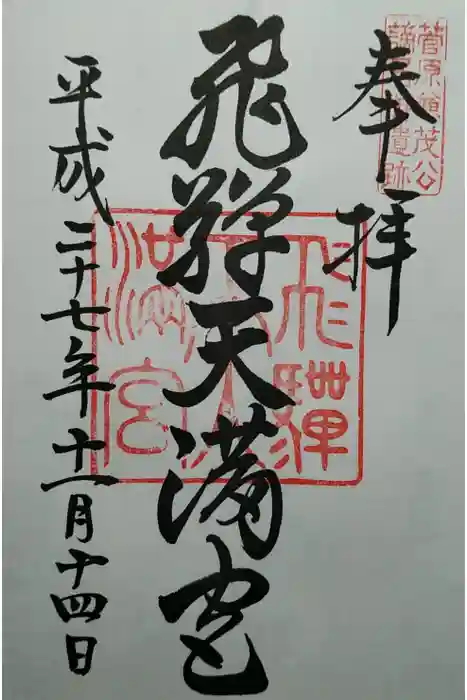 奉拝
菅原兼茂公
遺跡
飛騨天満宮
飛騨天満宮
平成二十七年十一月十四日